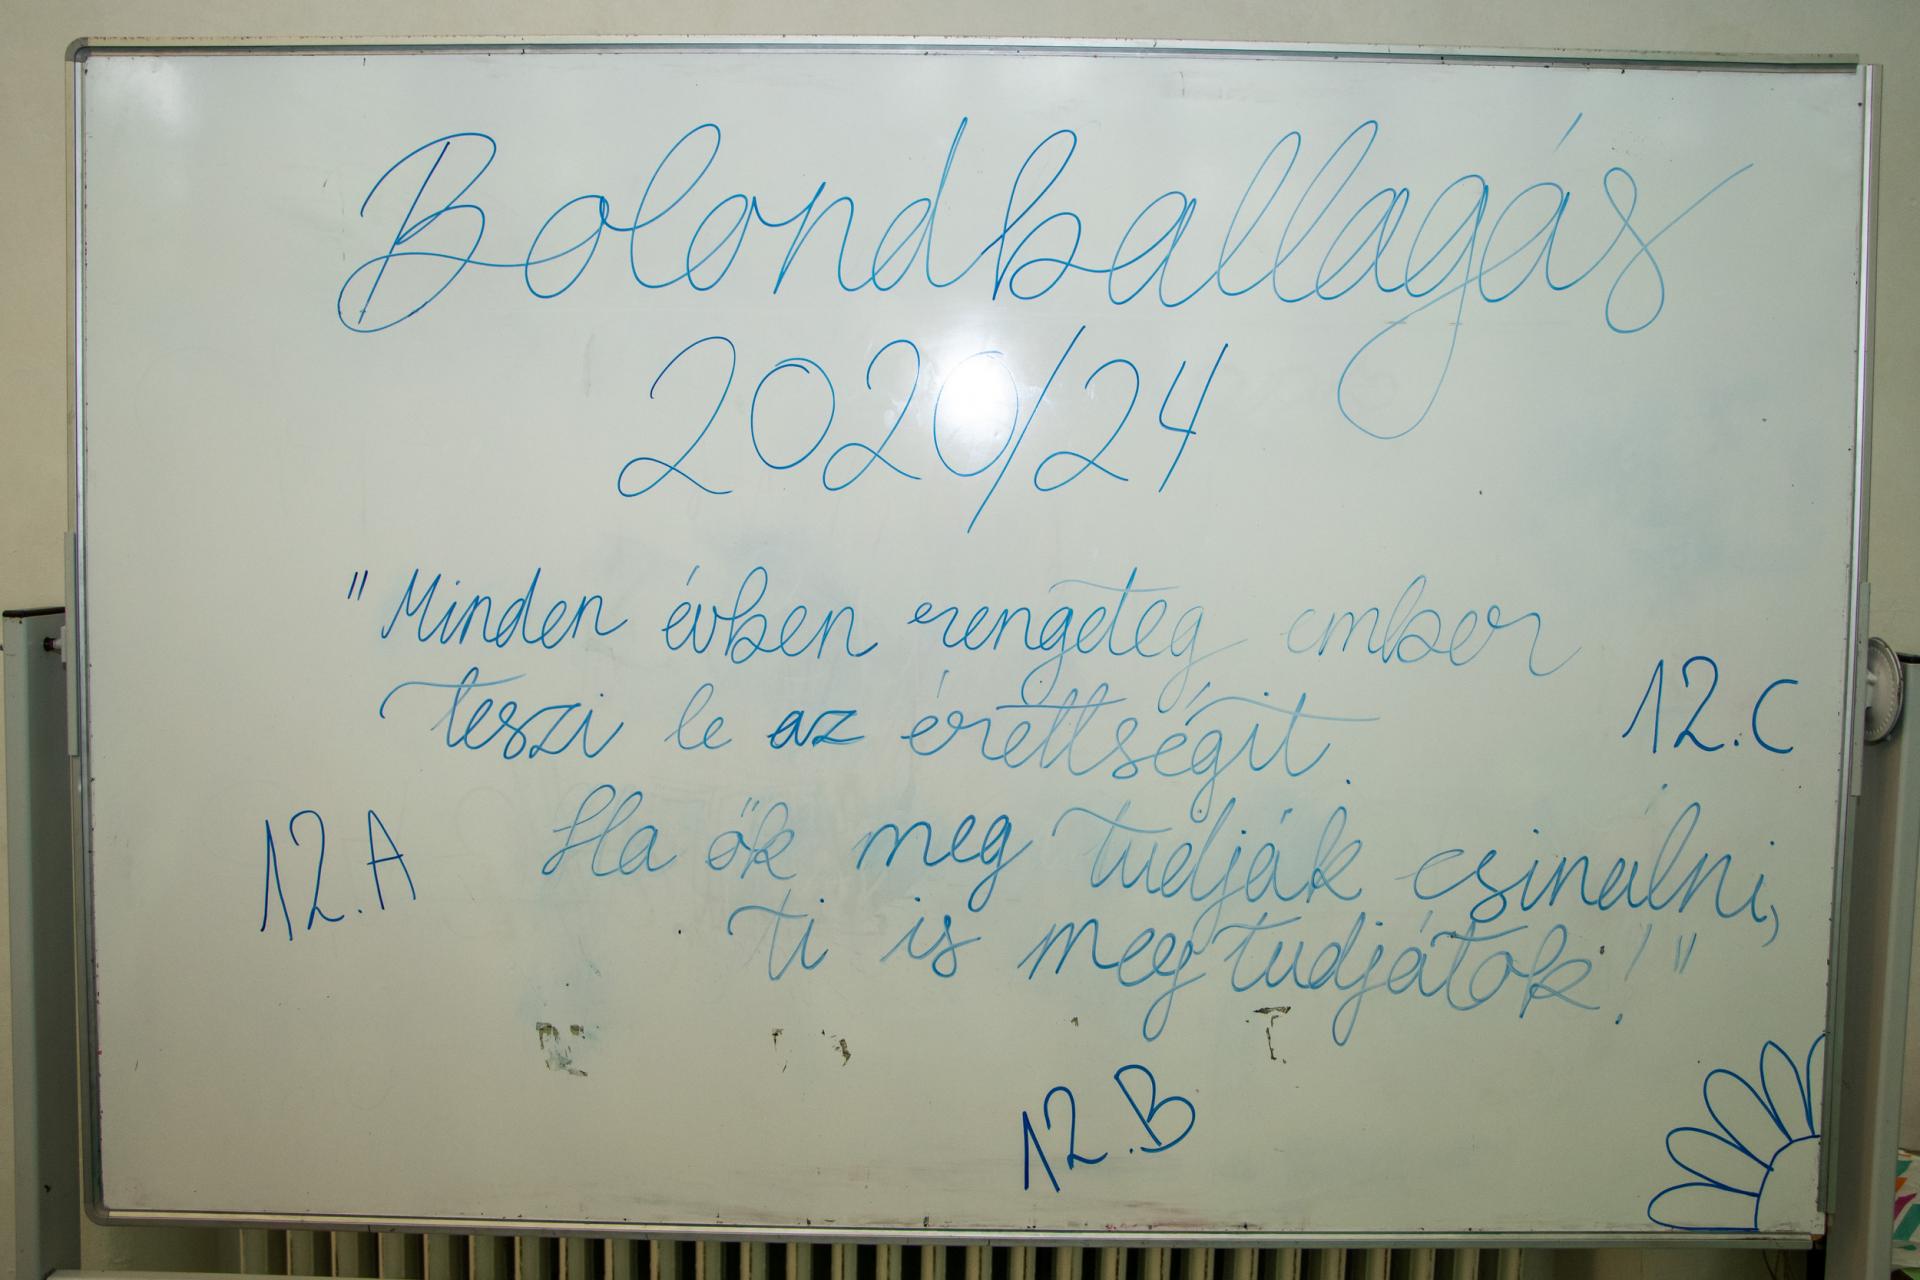 Bolondballagás
2020/24
"Minden évben rengeteg ember
teszi le az érettségit.
Ha ők meg tudják csinálni,
ti is megtudjátok!"
12.C
12.A
12.B